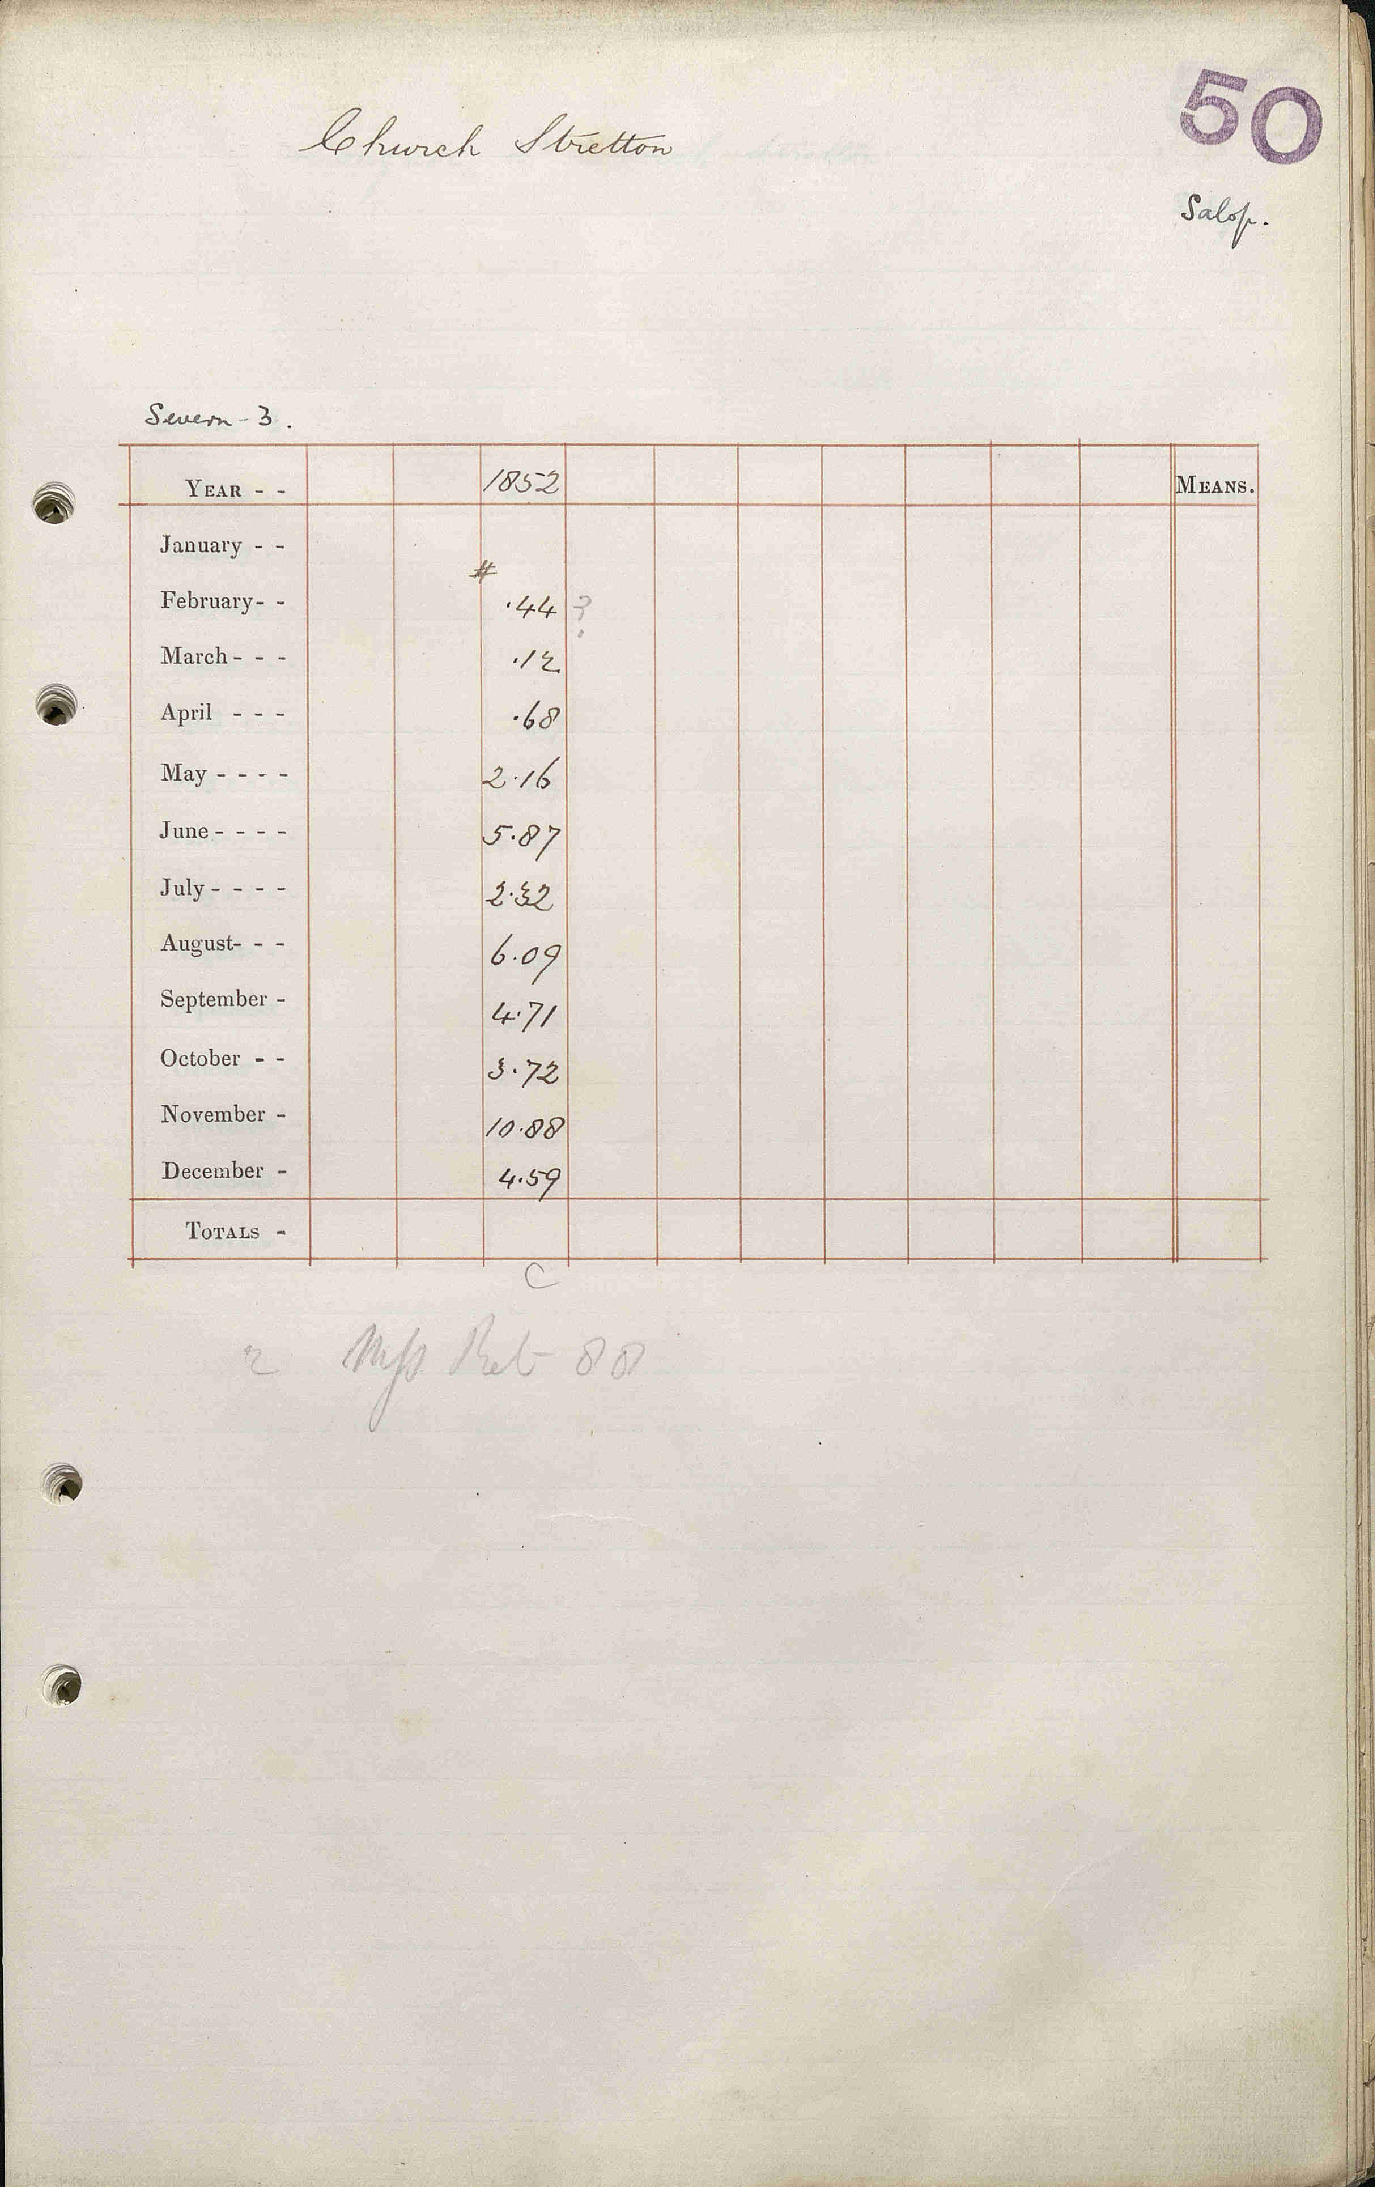 50
Church Stretton
Salop.
Severn - 3.
YEAR - - 1852 MEANS.
January - -
#
February- - .44 ?
March - - - .12
April - - - .68
May - - - - 2.16
June - - - - 5.87
July - - - - 2.32
August- - - 6.09
September - 4.71
October - - 3.72
November - 10.88
December - 4.59
TOTALS -
C
2 Mss 88